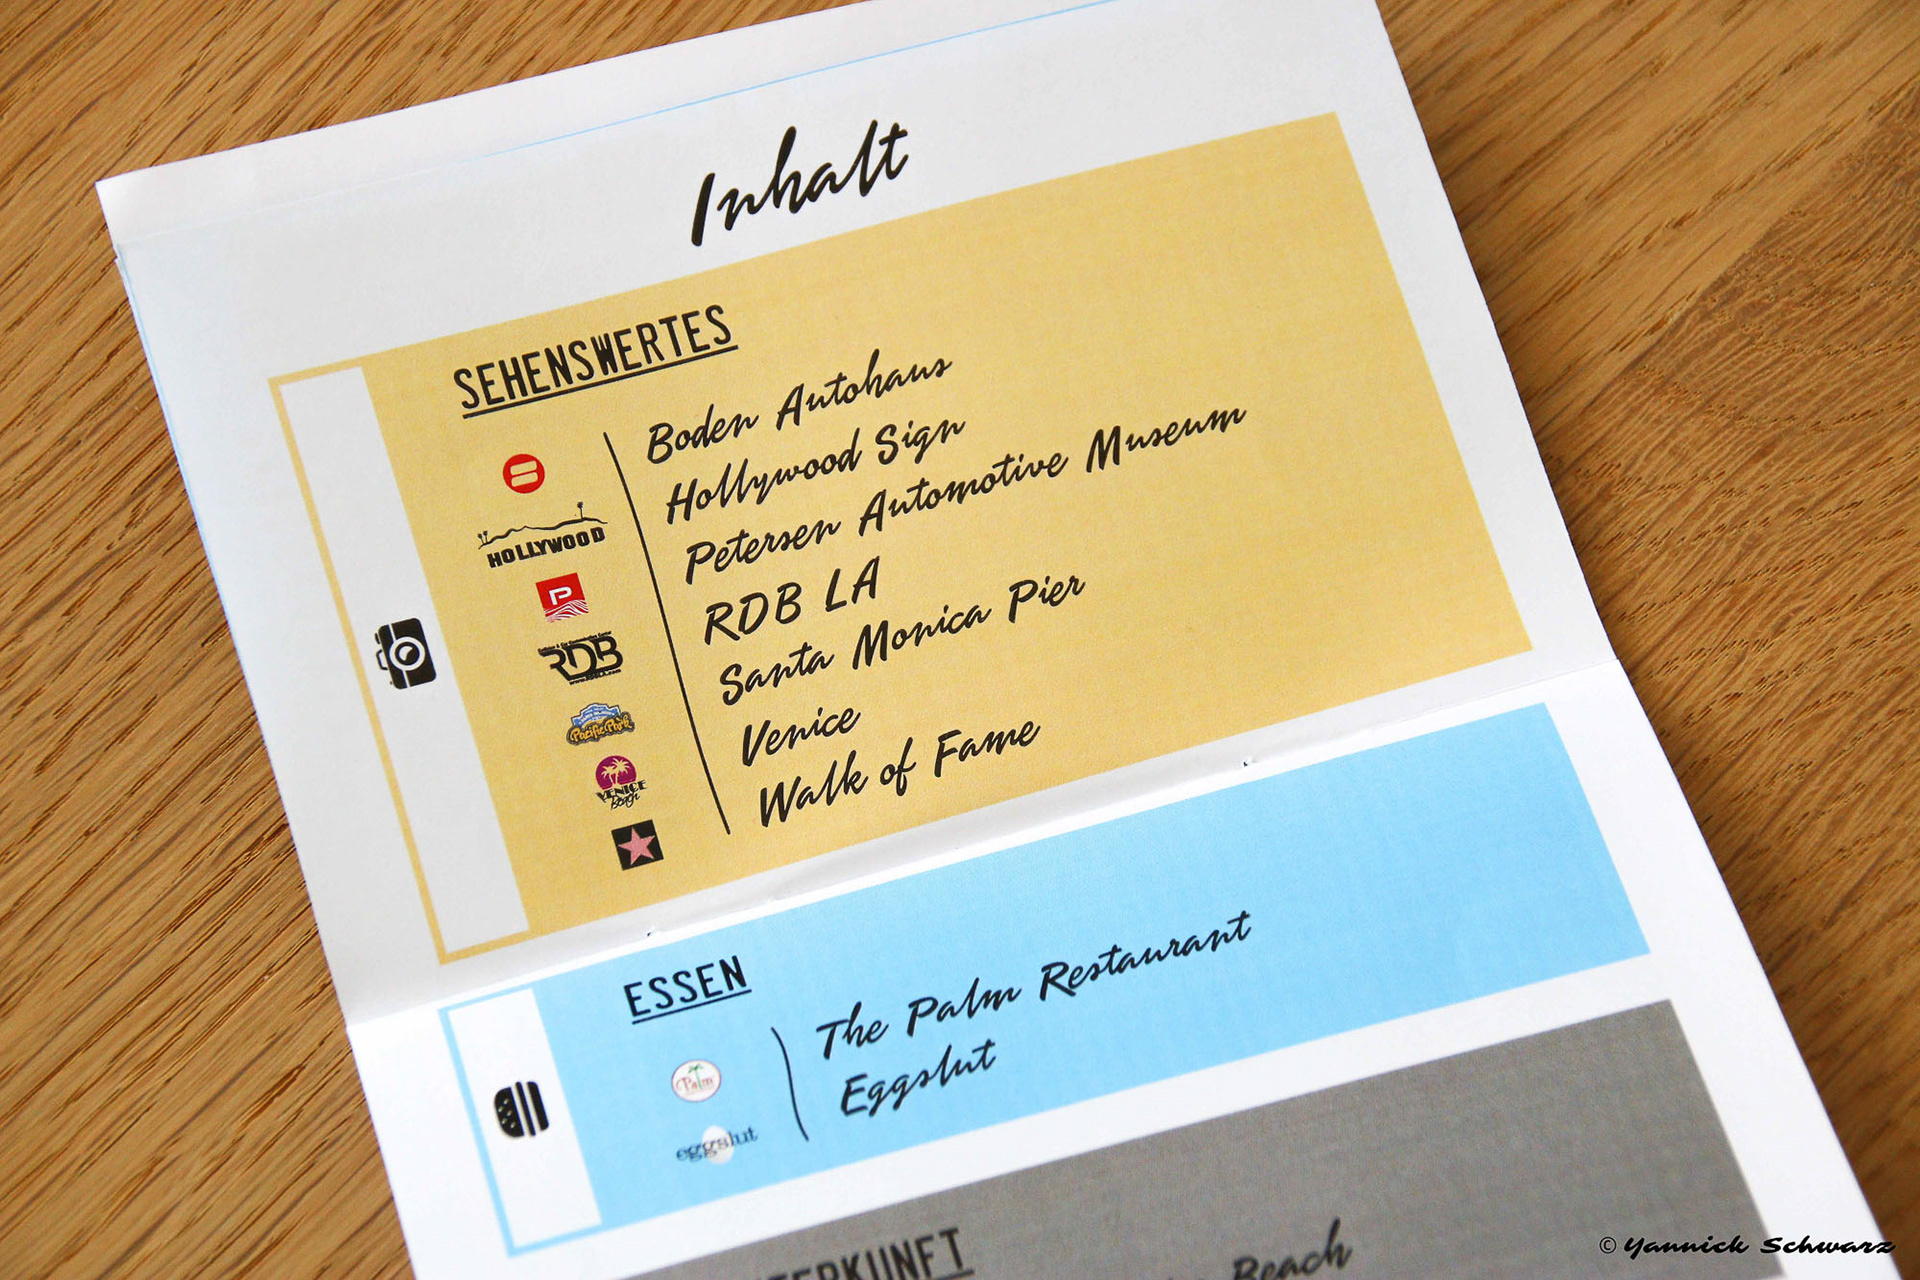 Inhalt
SEHENSWERTES
Boden Autohaus
Hollywood Sign
HOLLYWOOD
Petersen Automotive Museum
P
RDB LA
RDB
Santa Monica Pier
Pacific Park
Venice
VENICE
Beach
Walk of Fame
ESSEN
The Palm Restaurant
Palm
Eggslut
eggslut
Beach
© Yannick Schwarz